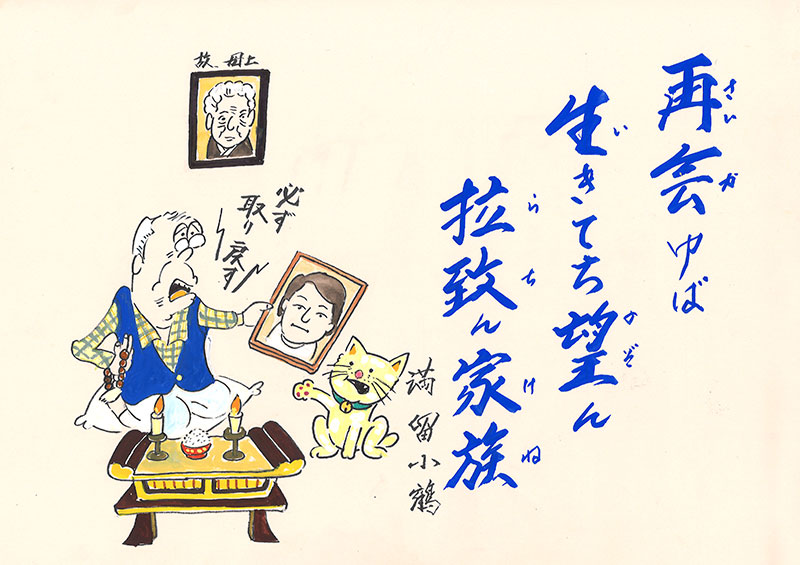 再会ゆば
さいか
生きてち望ん
いのぞ
拉致ん家族
らちけね
満留小鶴
必ず
取り戻す
故 母上